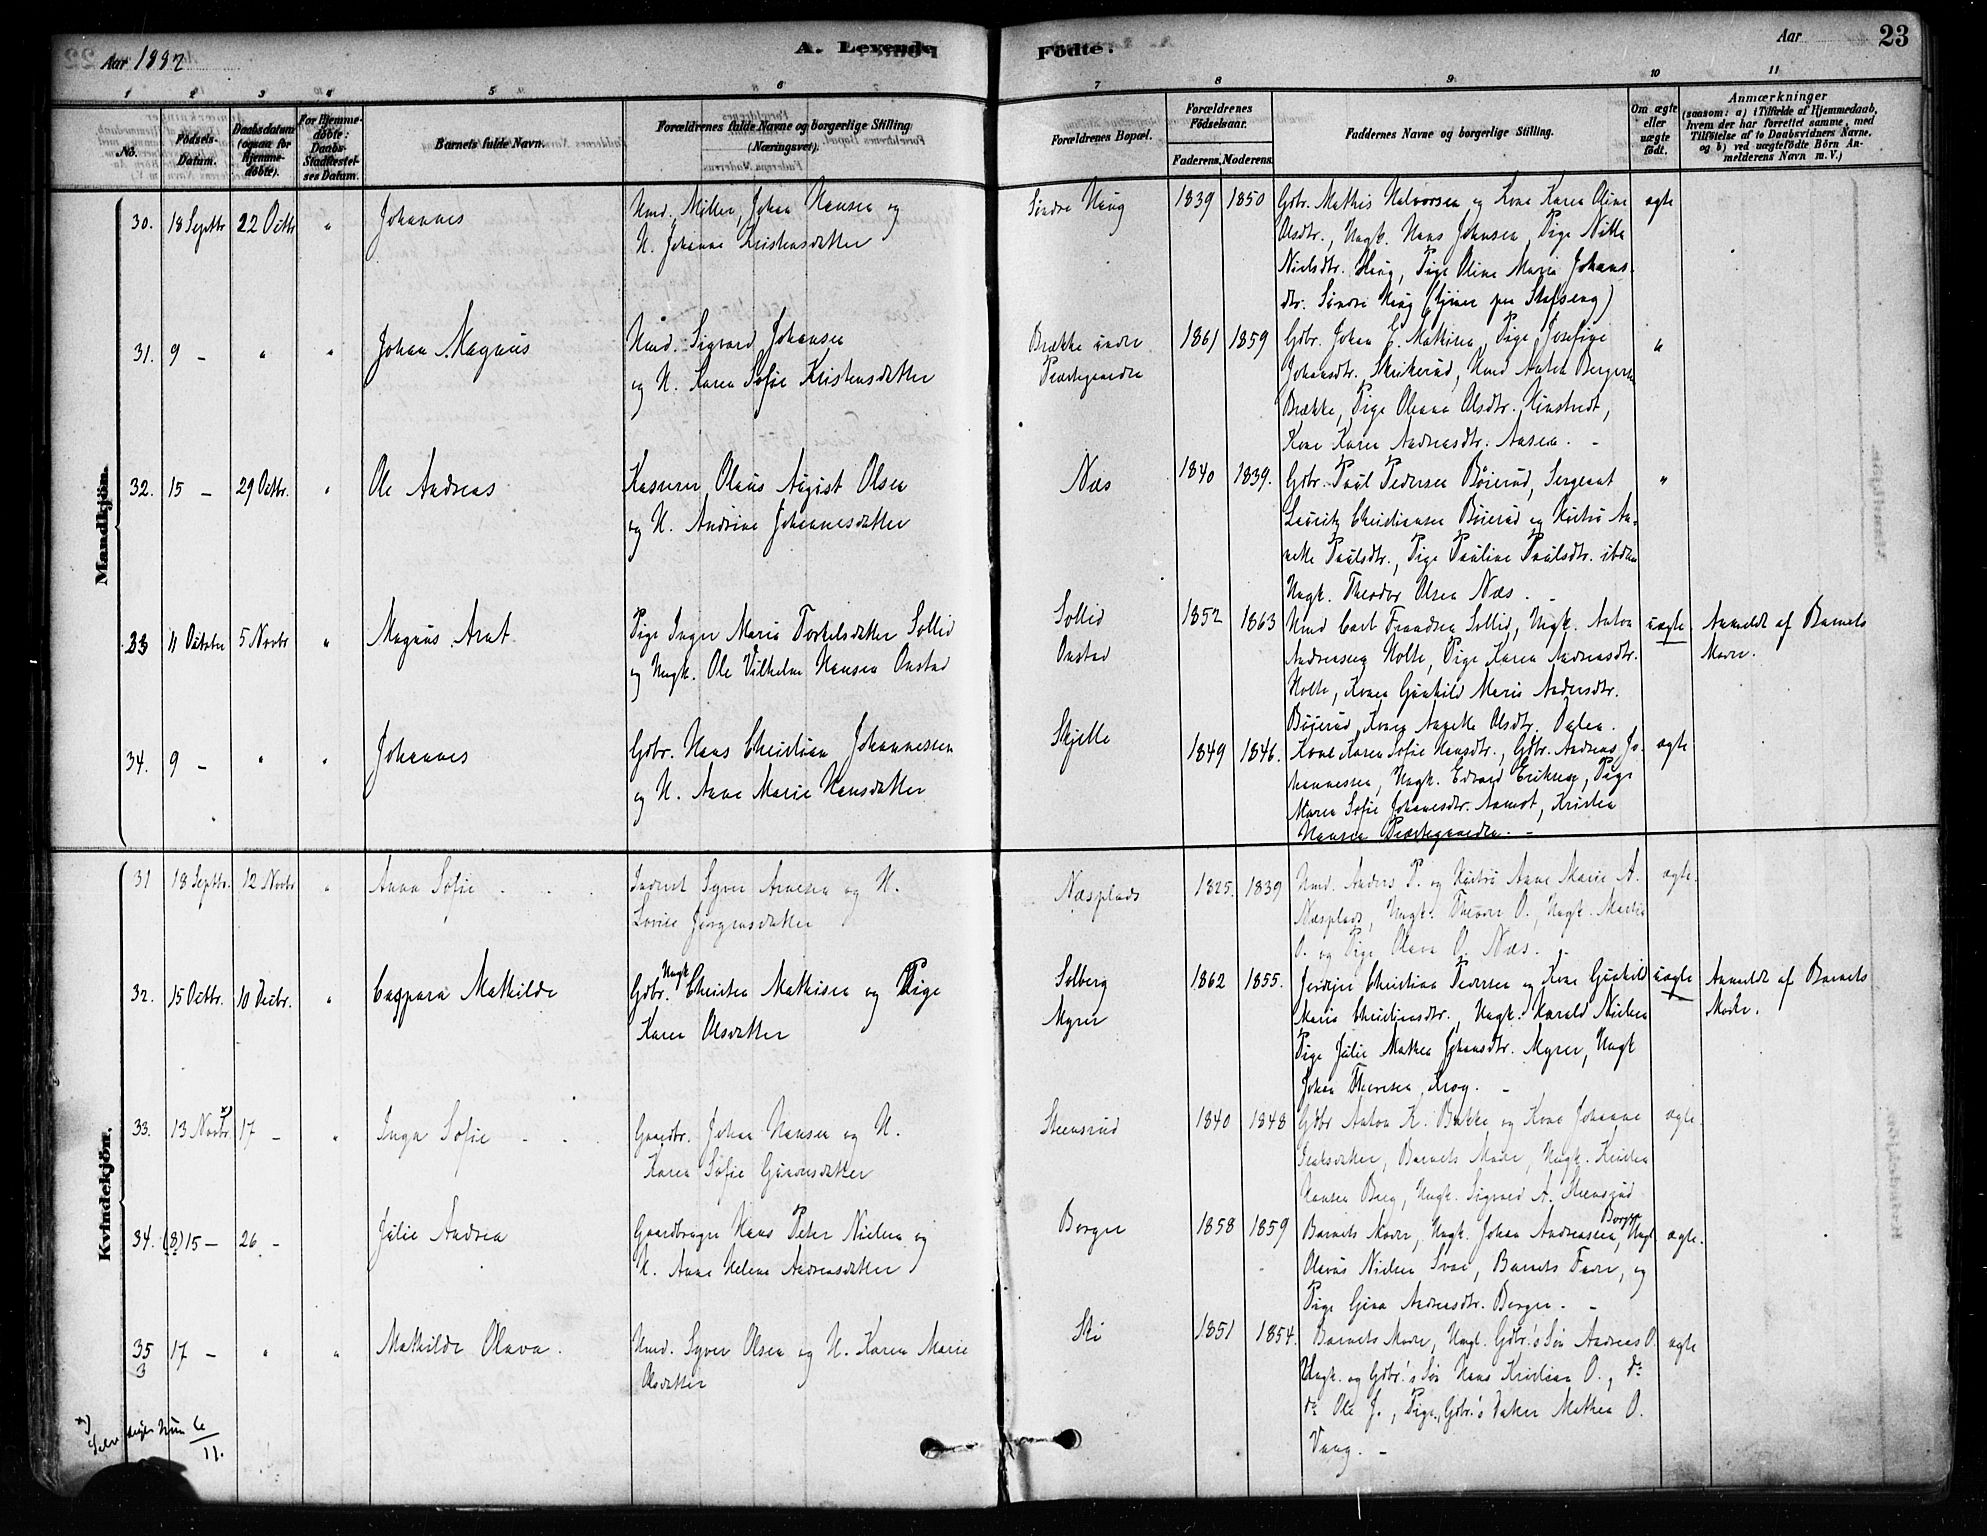 Aar 1882
A. Levende Födte.
Aar
23
1 2 3 4 5 6 7 8 9 10 11
No.
Födsels-Datum.
Daabsdatum (ogsaa for Hjemme-döbte).
For Hjemme-döbte: Daabs-Stadfæstel-ses Datum.
Barnets fulde Navn.
Forældrenes fulde Navne og borgerlige Stilling (Næringsvei).
Forældrenes Bopæl.
Forældrenes Födselsaar.
Faderens. Moderens.
Faddernes Navne og borgerlige Stilling.
Om ægte eller uægte födt.
Anmærkninger
(saasom: a) i Tilfælde af Hjemmedaab, hvem der har forrettet samme, med Tilföielse af to Daabsvidners Navne, og b) ved uægtefödte Börn An-melderens Navn m. V.)
Mandkjön.
30. 18 Septbr 22 Octbr " Johannes
Hmd. Møller, Johan Hansen og
H. Johanne Kristensdatter
Søndre Haug 1839 1850
Gdbr. Mathis Halvorsen og Kone Karen Oline
Olsdtr., Ungk. Hans Johnsen, Pige Nille
Nielsdtr. Haug, Pige Oline Marie Johans-
dtr. Søndre Haug (tjener paa )
ægte
31. 9 - " " Johan Magnus
Hmd. Sigvard Johansen
og H. Karen Sofie Kristensdatter
Brække under
Præstegaarden
1861 1859
Gdbr. Johan E. Mathisen, Pige Josefine
Johansdtr. Skrikerud, Hmd Anton Bergersen
Brække, Pige Oleana Olsdtr.
Kone Karen Andreasdtr. Aasen. -
"
32. 15 - 29 Octbr. " Ole Andreas
Kasserer Olaus August Olsen
og H. Andrine Johannesdatter
Næs 1840 1839.
Gdbr. Paul Pedersen Bøierud, Sergeant
Lauritz Christiansen Bøierud og Hustru An-
nette Paulsdtr., Pige Pauline Paulsdtr. ibdm
Ungk. Theodor Olsen Næs. -
"
33 11 Octobr 5 Novbr " Magnus Arnt.
Pige Inger Marie Torkelsdatter Sollid
og Ungk. Ole Vilhelm Hansen Onstad
Sollid
Onstad
1852 1863
Hmd Carl Frandsen Sollid, Ungk. Anton
Andreassen Holte, Pige Karen Andreasdtr.
Holte, Konen Gunhild Marie Andersdtr.
Bøierud, Konen Annette Olsdtr. Dalen.
uægte
Anmeldt af Barnets
Moder.
34. 9 - " " Johannes
Gdbr. Hans Christian Johannessen
og H. Anne Marie Hansdatter
Skjelle 1849 1846.
Kone Karen Sofie Hansdtr., Gdbr. Andreas Jo-
hannessen, Ungk. Edvard Eriksen, Pige
Maren Sofie Johannesdtr. Aamot, Kristen
Hansen Præstegaarden. -
ægte
Kvindekjön.
31 18 Septbr. 12 Novbr " Anna Sofie
Inderst Syver Arnesen og H.
Lovise Jørgensdatter
Næsplads 1825. 1839
Hmd. Anders P. og Hustru Anne Marie A.
Næsplads, Ungk. Theodor O., Ungk. Martin
O. og Pige Olava O. Næs. -
ægte.
32. 15 Octbr. 10 Decbr. " Caspara Mathilde
Gdbr. Ungk Christen Mathisen og Pige
Karen Olsdatter
Solberg
Myrer
1862 1855.
Christian Pedersen og Kone Gunhild
Marie Christiansdtr., Ungk. Harald Nielsen
Pige Julie Mathea Johansdtr. Myrer, Ungk
Johan Thoresen Krog. -
uægte
Anmeldt af Barnets
Moder.
33. 13 Novbr x) 17 - " Inga Sofie
Gaardbr. Johan Hansen og H.
Karen Sofie Gundersdatter
Steensrud 1840 1848
Gdbr Anton K. Bakke og Kone Johanne
Barnets Moder, Ungk. Kristian
Hansen Berg, Ungk. Sigvard A. Steensrud
ægte.
34. (8) 15 - 26 - Julie Andrea
Gaardbruger Hans Peter Nielsen og
H. Anne Helene Andreasdatter
Berger 1858 1859
Barnets Moder, Ungk. Johan Andreassen Berger, Ungk
Olaus Nielsen Svae, Barnets Fader, og
Pige Gina Andreasdtr. Berger. -
ægte.
35 17 - " " Mathilde Olava.
3
Hmd. Syver Olsen og H. Karen Marie
Olsdatter
Ski 1851 1854.
Barnets Moder, Ungk. Gdbr.'s Søn Andreas O.
Ungk. og Gdbr.'s Søn Hans Kristian O., do
do Ole J., Pige, Gdbr.'s Datter Mathea O.
Vaag. -
ægte
x) Selv siger hun 6/11.